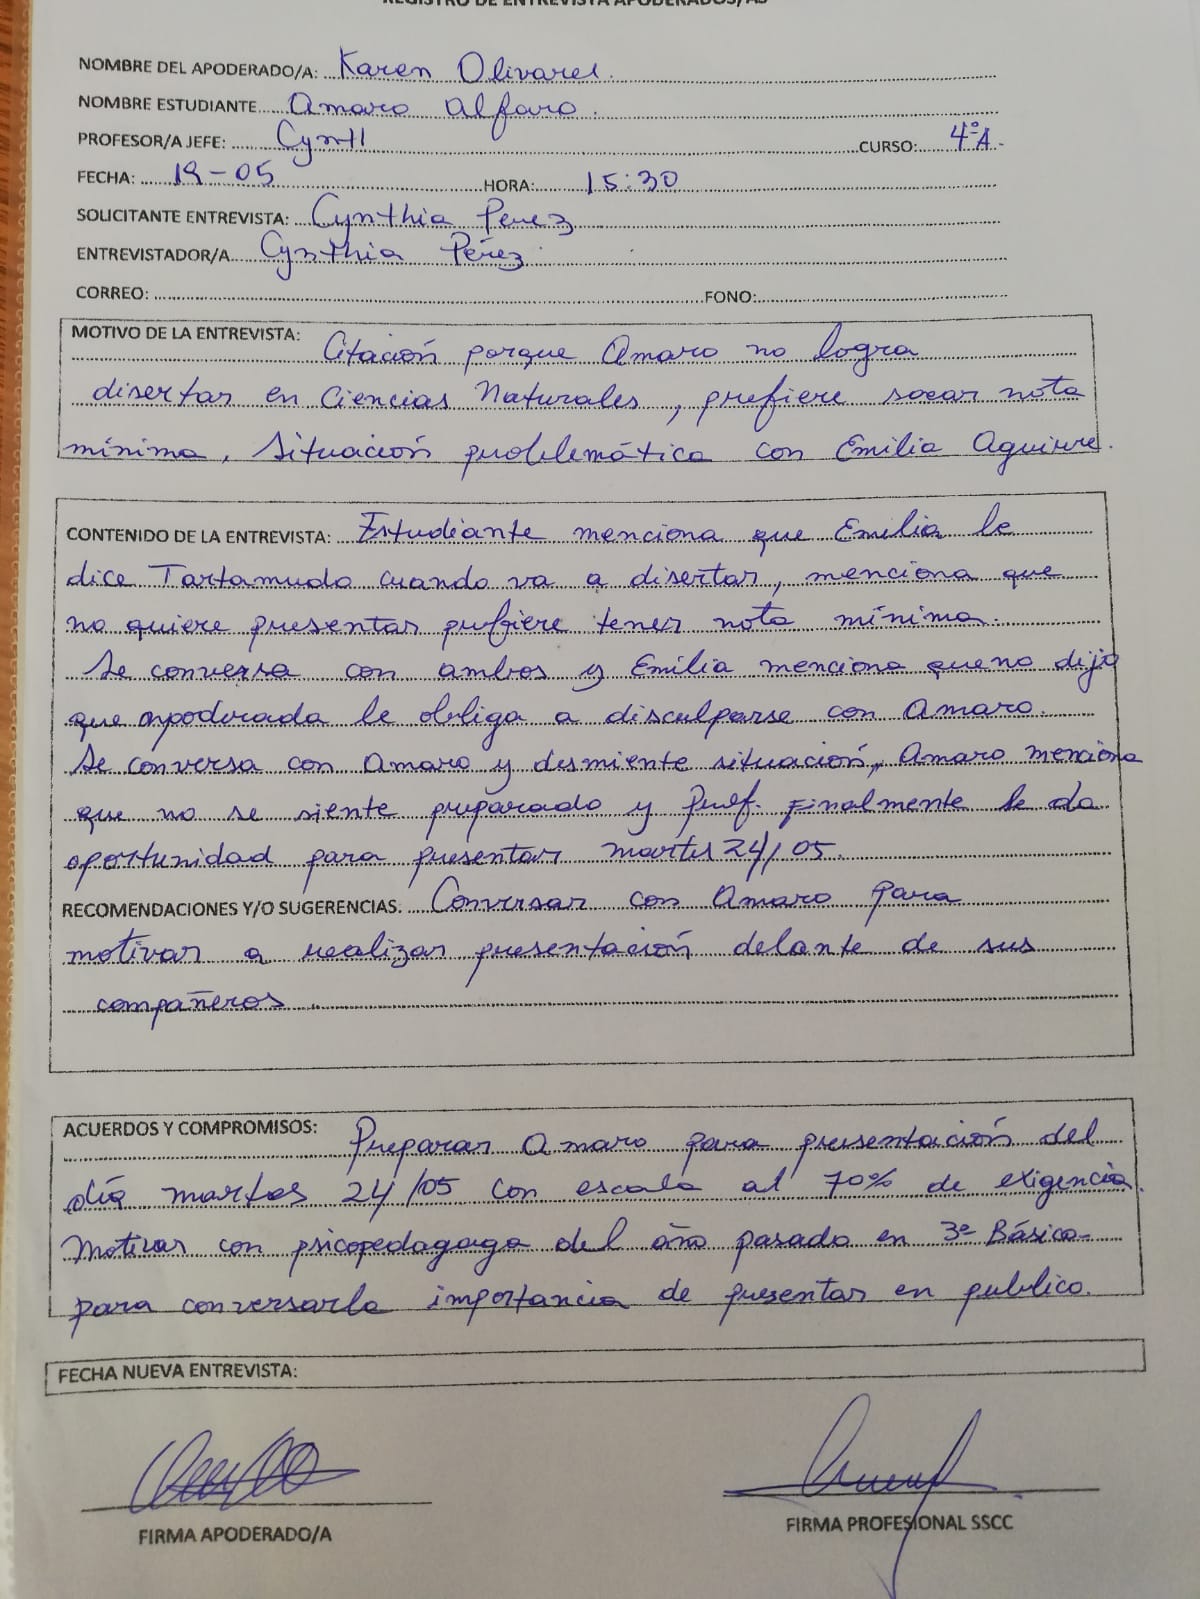 REGISTRO DE ENTREVISTA APODERADOS/AS
NOMBRE DEL APODERADO/A: Karen Olivares.
NOMBRE ESTUDIANTE Amaro Alfaro.
PROFESOR/A JEFE: CURSO: 4ºA.
FECHA: 19-05 HORA: 15:30
SOLICITANTE ENTREVISTA: Cynthia Perez
ENTREVISTADOR/A Cynthia Pérez
CORREO: FONO:
MOTIVO DE LA ENTREVISTA: Citación porque Amaro no logra
disertar en Ciencias Naturales, prefiere sacar nota
mínima, situación problemática con Emilia Aguirre.
CONTENIDO DE LA ENTREVISTA: Estudiante menciona que Emilia le
dice Tartamudo cuando va a disertar, menciona que
no quiere presentar prefiere tener nota mínima.
Se conversa con ambos y Emilia menciona que no dijo
que apoderada le obliga a disculparse con Amaro.
Se conversa con Amaro y desmiente situación, Amaro menciona
que no se siente preparado y Prof. Finalmente le da
oportunidad para presentar martes 24/05.
RECOMENDACIONES Y/O SUGERENCIAS. Conversar con Amaro para
motivar a realizar presentación delante de sus
compañeros.
ACUERDOS Y COMPROMISOS: Preparar Amaro para presentación del
día martes 24/05 con escala al 70% de exigencia.
Motivar con psicopedagoga del año pasado en 3º Básico
para conversar la importancia de presentar en publico.
FECHA NUEVA ENTREVISTA:
FIRMA APODERADO/A
FIRMA PROFESIONAL SSCC